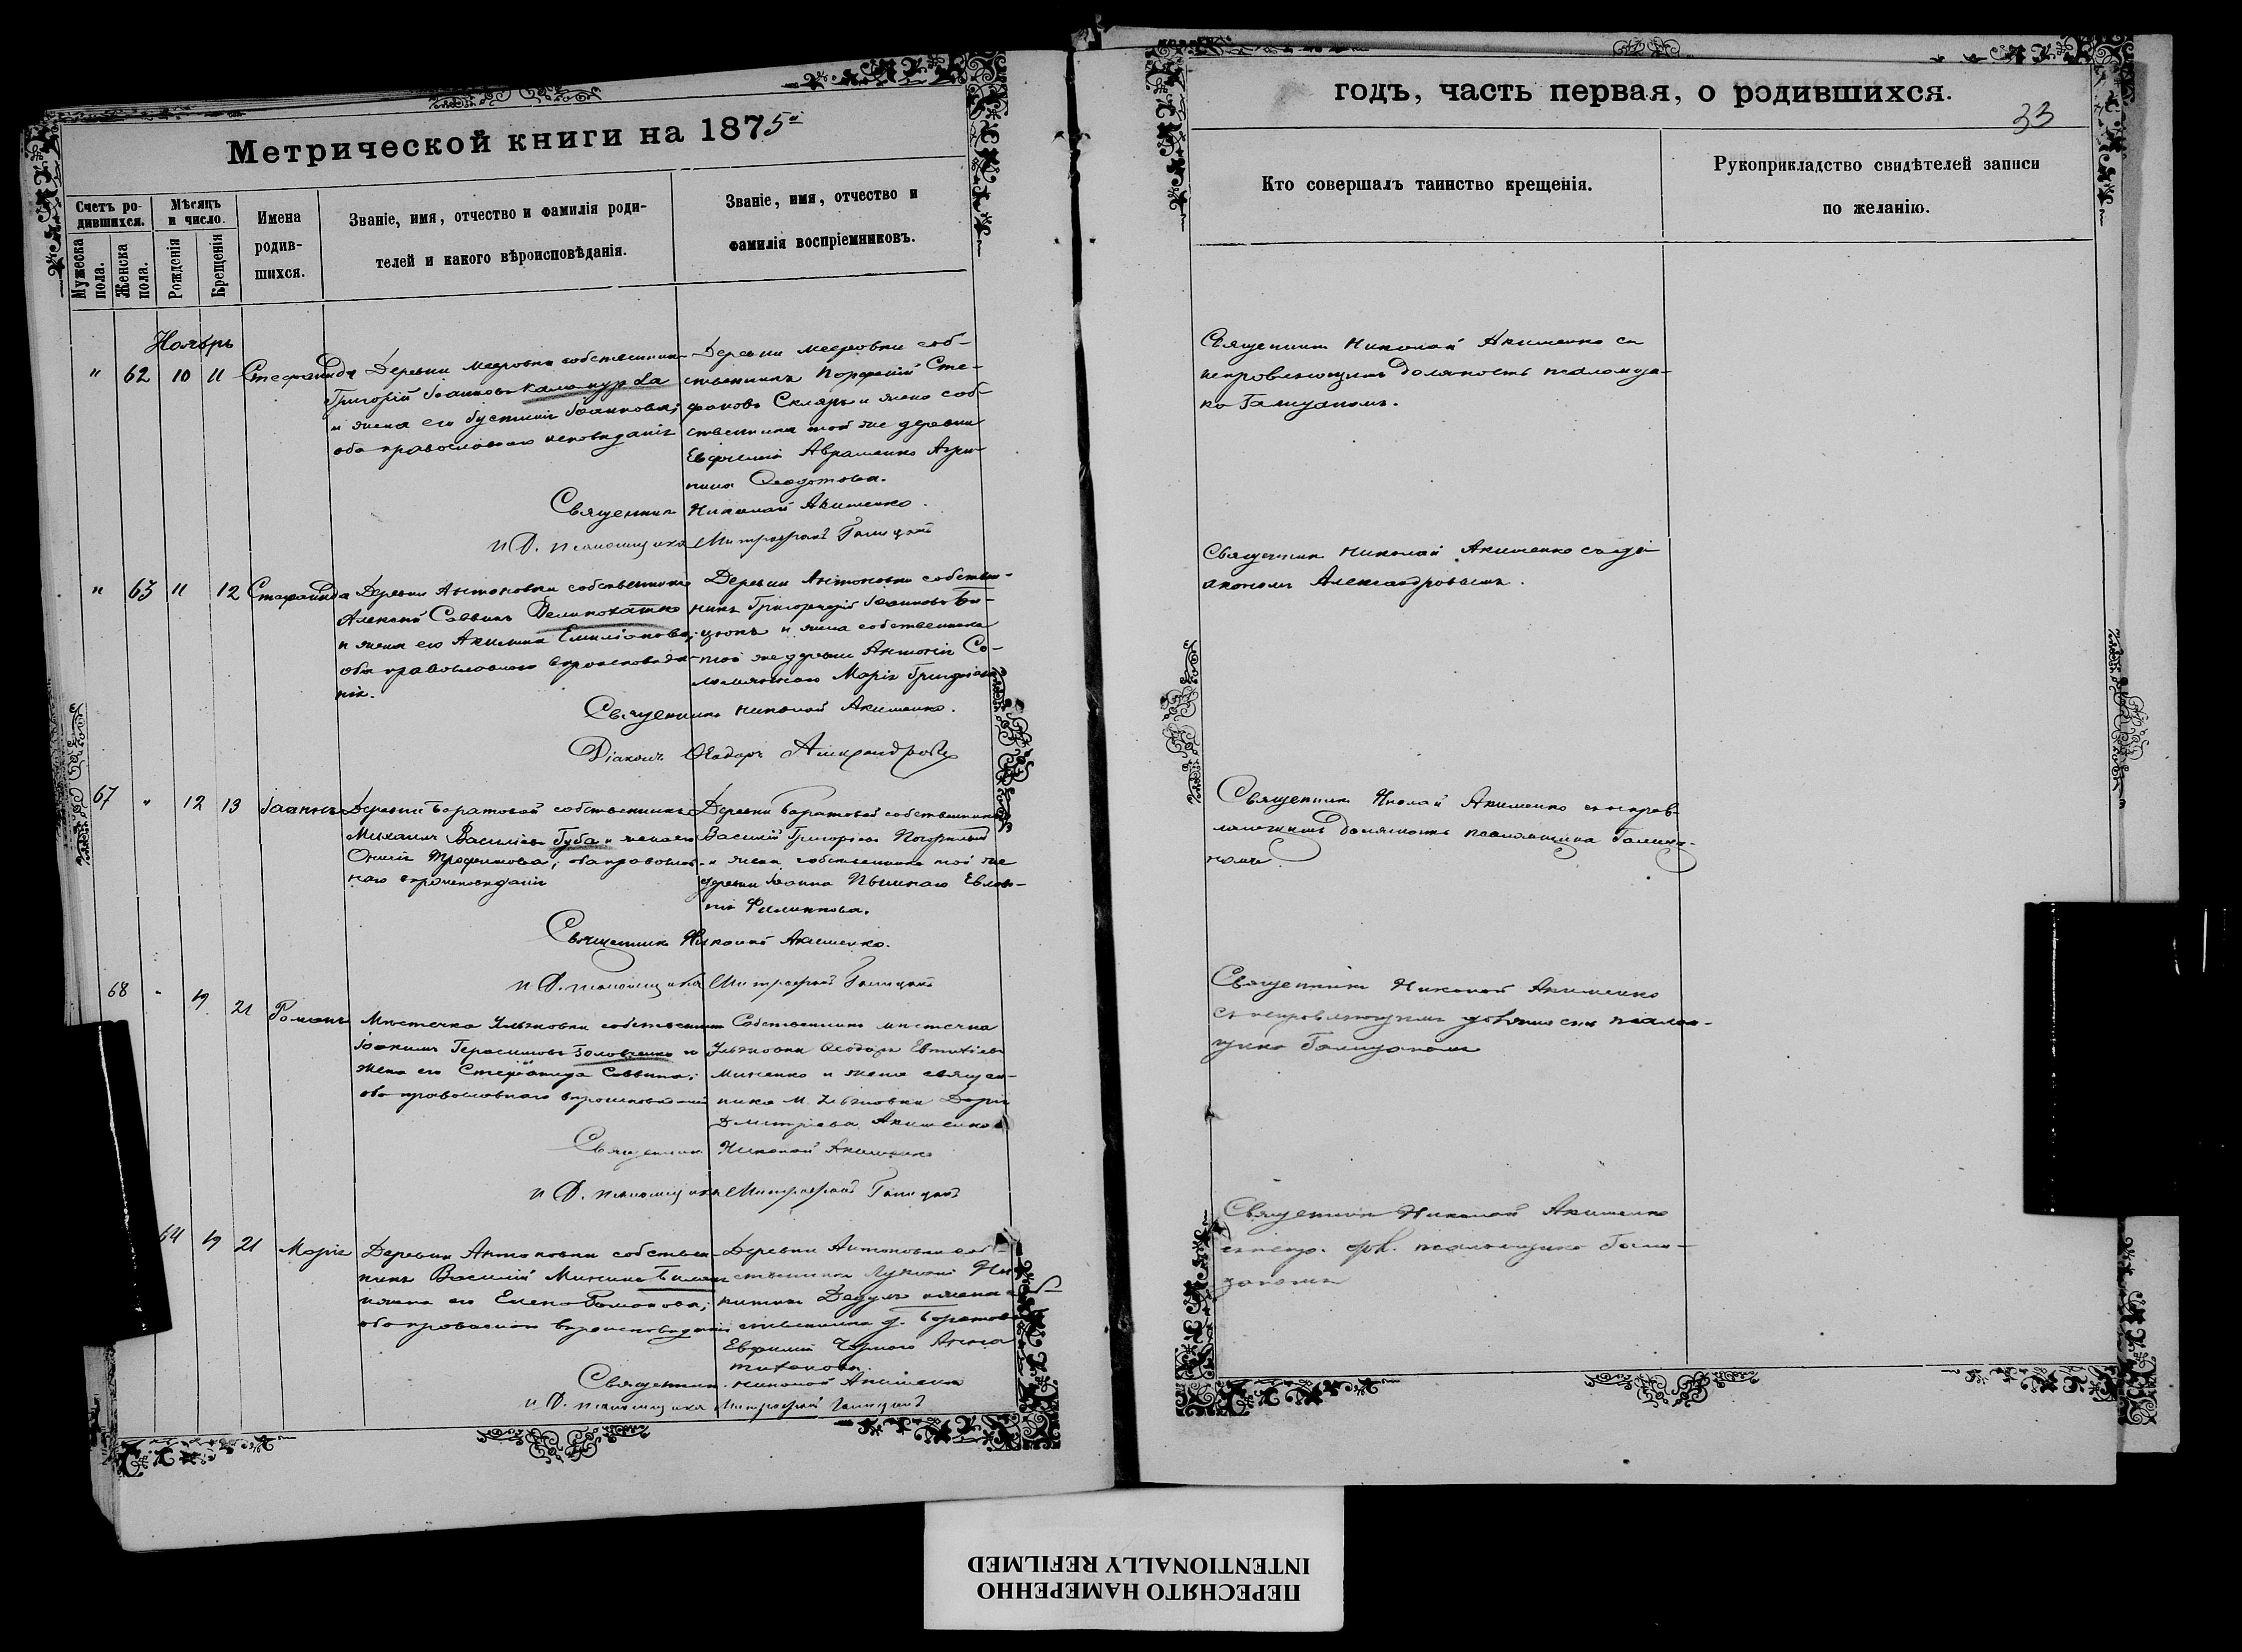 Метрической книги на 1875й
Счетъ ро-
дившихся.
Мужеска
пола.
Женска
пола.
Мѣсяцъ
и число.
Рожденія
Крещенія
Имена
родив-
шихся.
Званіе, имя, отчество и фамилія роди-
телей и какого вѣроисповѣданія.
Званіе, имя, отчество и
фамилія воспріемниковъ.
Ноябрь
" 62 10 11 Стефанида
Деревни собственникъ
Григорій Іоанновъ
и жена его Іоаннова;
оба православнаго
Деревни соб-
ственникъ Порфирій Сте-
фановъ Скляръ и жена соб-
ственника той же деревни
Евфимія Авраменко Агри-
пина Ѳеодотова.
Священникъ Николай Акименко.
и Д. псаломщика Митрофанъ
" 63 11 12 Стефанида
Деревни Антоновки собственникъ
Алексій Саввинъ Великохатко
и жена его Акилина Емиліанова;
оба православнаго вѣроисповѣда-
нія.
Деревни Антоновки собствен-
никъ Іоанновъ
и жена собственника
той же деревни Антонія Со-
Марія Григоріева
Священникъ Николай Акименко.
Діаконъ Ѳеодоръ Александровъ
67 " 12 13 Іоаннъ
Деревни Баратовой собственникъ
Михаилъ Василіевъ Губа и жена его
Трофимова; оба православ-
наго вѣроисповѣданія
Деревни Баратовой собственникъ
Василій Григоріевъ
и жена собственника той же
деревни Іоанна Евдо-
кія Филиппова.
Священникъ Николай Акименко.
и Д. псаломщика Митрофанъ
68 " 19 21 Романъ
Мѣстечка Ульяновки собственникъ
Іоакимъ Герасимовъ Головченко и
жена его Стефанида Саввина;
оба православнаго вѣроисповѣданія
Собственникъ мѣстечка
Ульяновки Ѳеодоръ Евтихіевъ
Миненко и жена священ-
ника м. Ульяновки Дарія
Дмитріева Акименкова
Священникъ Николай Акименко
и Д. псаломщика Митрофанъ
64 19 21 Марія
Деревни Антоновки собствен-
никъ Василій Мининъ
и жена его Елена Романова;
оба православнаго вѣроисповѣданія
Деревни Антоновки соб-
ственникъ Ни-
китинъ и жена
ственника д. Баратов
Евфимія Чернаго Анна
Тихонова.
Священникъ Николай Акименко
и Д. псаломщика Митрофанъ
годъ, часть первая, о родившихся.
33
Кто совершалъ таинство крещенія.
Рукоприкладство свидѣтелей записи
по желанію.
Священникъ Николай Акименко съ
исправляющимъ должность псаломщи-
ка
Священникъ Николай Акименко съ ді-
акономъ Александровымъ.
Священникъ Николай Акименко съ исправ-
ляющимъ должность псаломщика
Священникъ Николай Акименко
съ исправляющимъ должность псалом-
щика
Священникъ Николай Акименко
съ псаломщика
ПЕРЕСНЯТО НАМЕРЕННО
INTENTIONALLY REFILMED